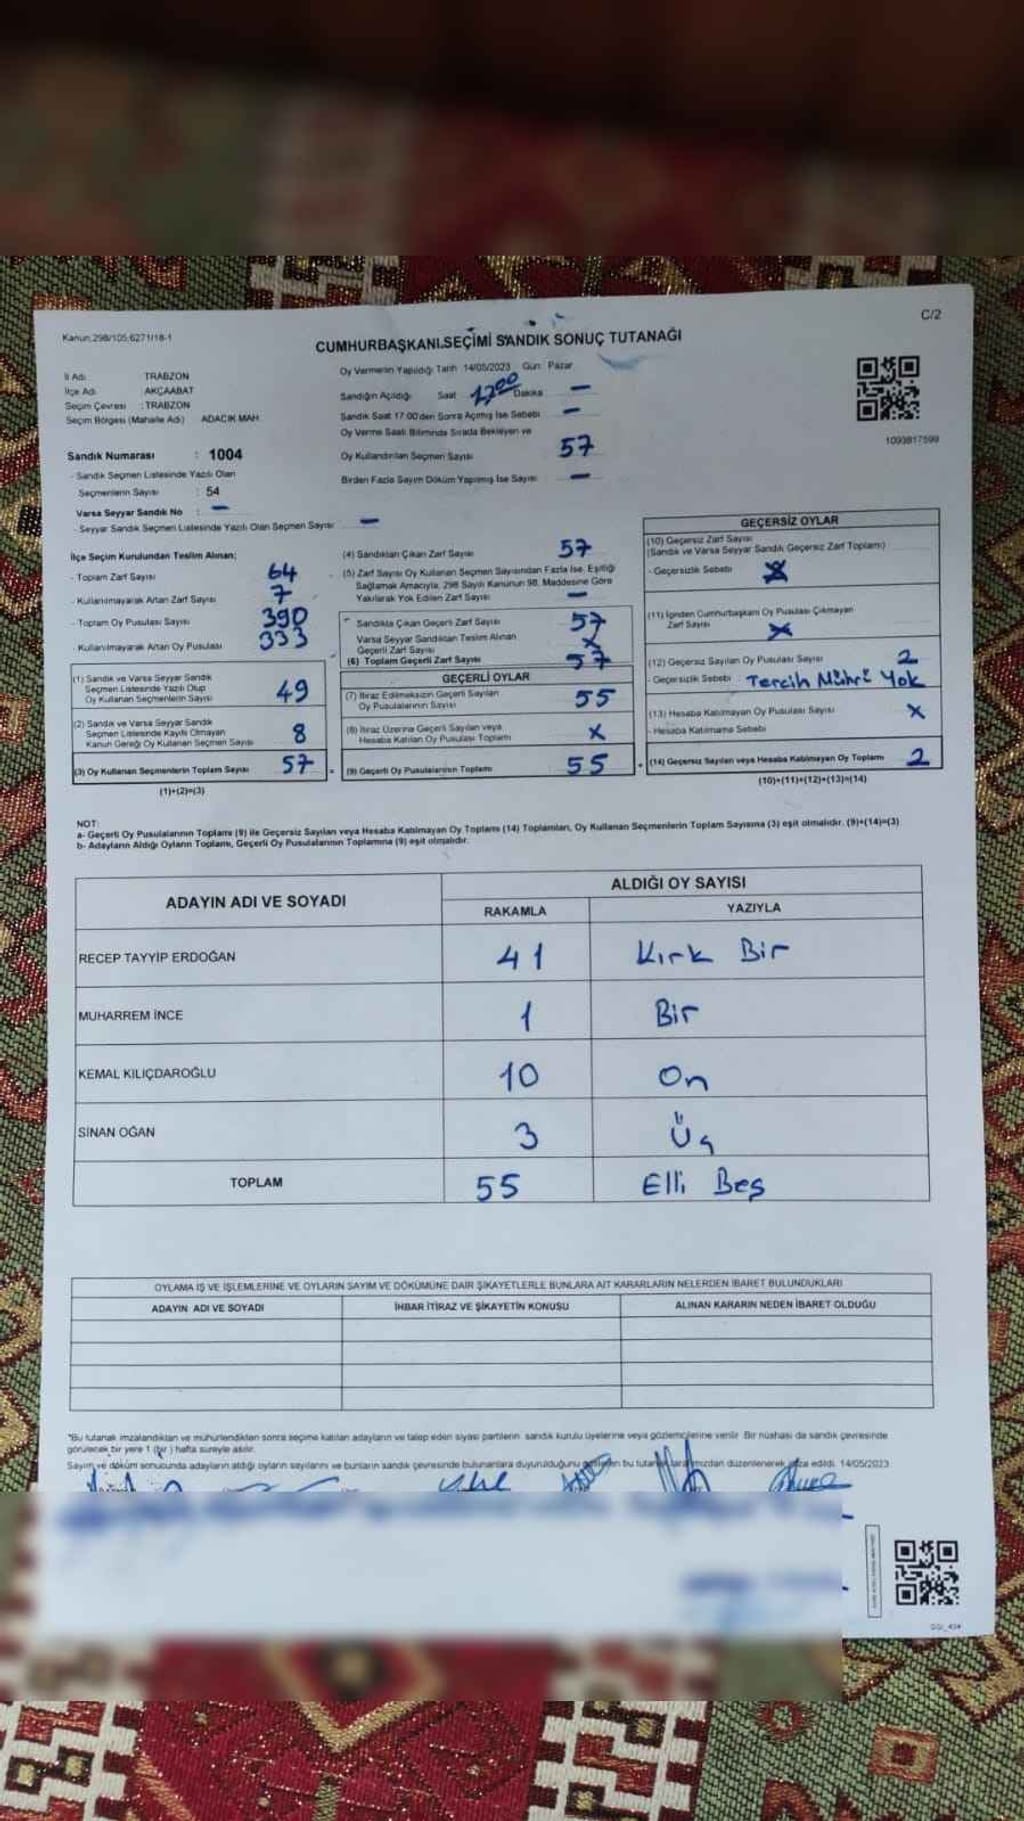 C/2
Kanun:298/105;6271/18-1
CUMHURBAŞKANI SEÇİMİ SANDIK SONUÇ TUTANAĞI
İl Adı TRABZON
İlçe Adı AKÇAABAT
Seçim Çevresi : TRABZON
Seçim Bölgesi (Mahalle Adı) ADACIK MAH.
Oy Vermenin Yapıldığı Tarih 14/05/2023 Gün: Pazar
Sandığın Açıldığı Saat 17 00 Dakika —
Sandık Saat 17:00'den Sonra Açılmış İse Sebebi —
Oy Verme Saati Bitiminde Sırada Bekleyen ve
Oy Kullandırılan Seçmen Sayısı 57
Birden Fazla Sayım Döküm Yapılmış İse Sayısı —
1093817599
Sandık Numarası : 1004
- Sandık Seçmen Listesinde Yazılı Olan
Seçmenlerin Sayısı : 54
Varsa Seyyar Sandık No : —
- Seyyar Sandık Seçmen Listesinde Yazılı Olan Seçmen Sayısı —
İlçe Seçim Kurulundan Teslim Alınan:
- Toplam Zarf Sayısı 64
- Kullanılmayarak Artan Zarf Sayısı 7
- Toplam Oy Pusulası Sayısı 390
- Kullanılmayarak Artan Oy Pusulası 333
(1) Sandık ve Varsa Seyyar Sandık
Seçmen Listesinde Yazılı Olup
Oy Kullanan Seçmenlerin Sayısı 49
(2) Sandık ve Varsa Seyyar Sandık
Seçmen Listesinde Kayıtlı Olmayan
Kanun Gereği Oy Kullanan Seçmen Sayısı 8
(3) Oy Kullanan Seçmenlerin Toplam Sayısı 57
(1)+(2)=(3)
(4) Sandıktan Çıkan Zarf Sayısı 57
(5) Zarf Sayısı Oy Kullanan Seçmen Sayısından Fazla İse, Eşitliği
Sağlamak Amacıyla, 298 Sayılı Kanunun 98. Maddesine Göre
Yakılarak Yok Edilen Zarf Sayısı —
Sandıkta Çıkan Geçerli Zarf Sayısı 57
Varsa Seyyar Sandıktan Teslim Alınan
Geçerli Zarf Sayısı X
(6) Toplam Geçerli Zarf Sayısı 57
GEÇERLİ OYLAR
(7) İtiraz Edilmeksizin Geçerli Sayılan
Oy Pusulalarının Sayısı 55
(8) İtiraz Üzerine Geçerli Sayılan veya
Hesaba Katılan Oy Pusulası Toplamı X
(9) Geçerli Oy Pusulalarının Toplamı 55
GEÇERSİZ OYLAR
(10) Geçersiz Zarf Sayısı
(Sandık ve Varsa Seyyar Sandık Geçersiz Zarf Toplamı)
- Geçersizlik Sebebi X
(11) İçinden Cumhurbaşkanı Oy Pusulası Çıkmayan
Zarf Sayısı X
(12) Geçersiz Sayılan Oy Pusulası Sayısı 2
- Geçersizlik Sebebi : Tercih Mührü Yok
(13) Hesaba Katılmayan Oy Pusulası Sayısı X
- Hesaba Katılmama Sebebi
(14) Geçersiz Sayılan veya Hesaba Katılmayan Oy Toplamı 2
(10)+(11)+(12)+(13)=(14)
NOT:
a- Geçerli Oy Pusulalarının Toplamı (9) ile Geçersiz Sayılan veya Hesaba Katılmayan Oy Toplamı (14) Toplamları, Oy Kullanan Seçmenlerin Toplam Sayısına (3) eşit olmalıdır. (9)+(14)=(3)
b- Adayların Aldığı Oyların Toplamı, Geçerli Oy Pusulalarının Toplamına (9) eşit olmalıdır.
ADAYIN ADI VE SOYADI ALDIĞI OY SAYISI
RAKAMLA YAZIYLA
RECEP TAYYİP ERDOĞAN 41 Kırk Bir
MUHARREM İNCE 1 Bir
KEMAL KILIÇDAROĞLU 10 On
SİNAN OĞAN 3 Üç
TOPLAM 55 Elli Beş
OYLAMA İŞ VE İŞLEMLERİNE VE OYLARIN SAYIM VE DÖKÜMÜNE DAİR ŞİKAYETLERLE BUNLARA AİT KARARLARIN NELERDEN İBARET BULUNDUKLARI
ADAYIN ADI VE SOYADI İHBAR İTİRAZ VE ŞİKAYETİN KONUSU ALINAN KARARIN NEDEN İBARET OLDUĞU
*Bu tutanak imzalandıktan ve mühürlendikten sonra seçime katılan adayların ve talep eden siyasi partilerin sandık kurulu üyelerine veya gözlemcilerine verilir. Bir nüshası da sandık çevresinde
görülecek bir yere 1 (bir) hafta süreyle asılır.
Sayım ve döküm sonucunda adayların aldığı oyların sayılarını ve bunların sandık çevresinde bulunanlara duyurulduğunu bu tutanak düzenlenerek imza edildi. 14/05/2023